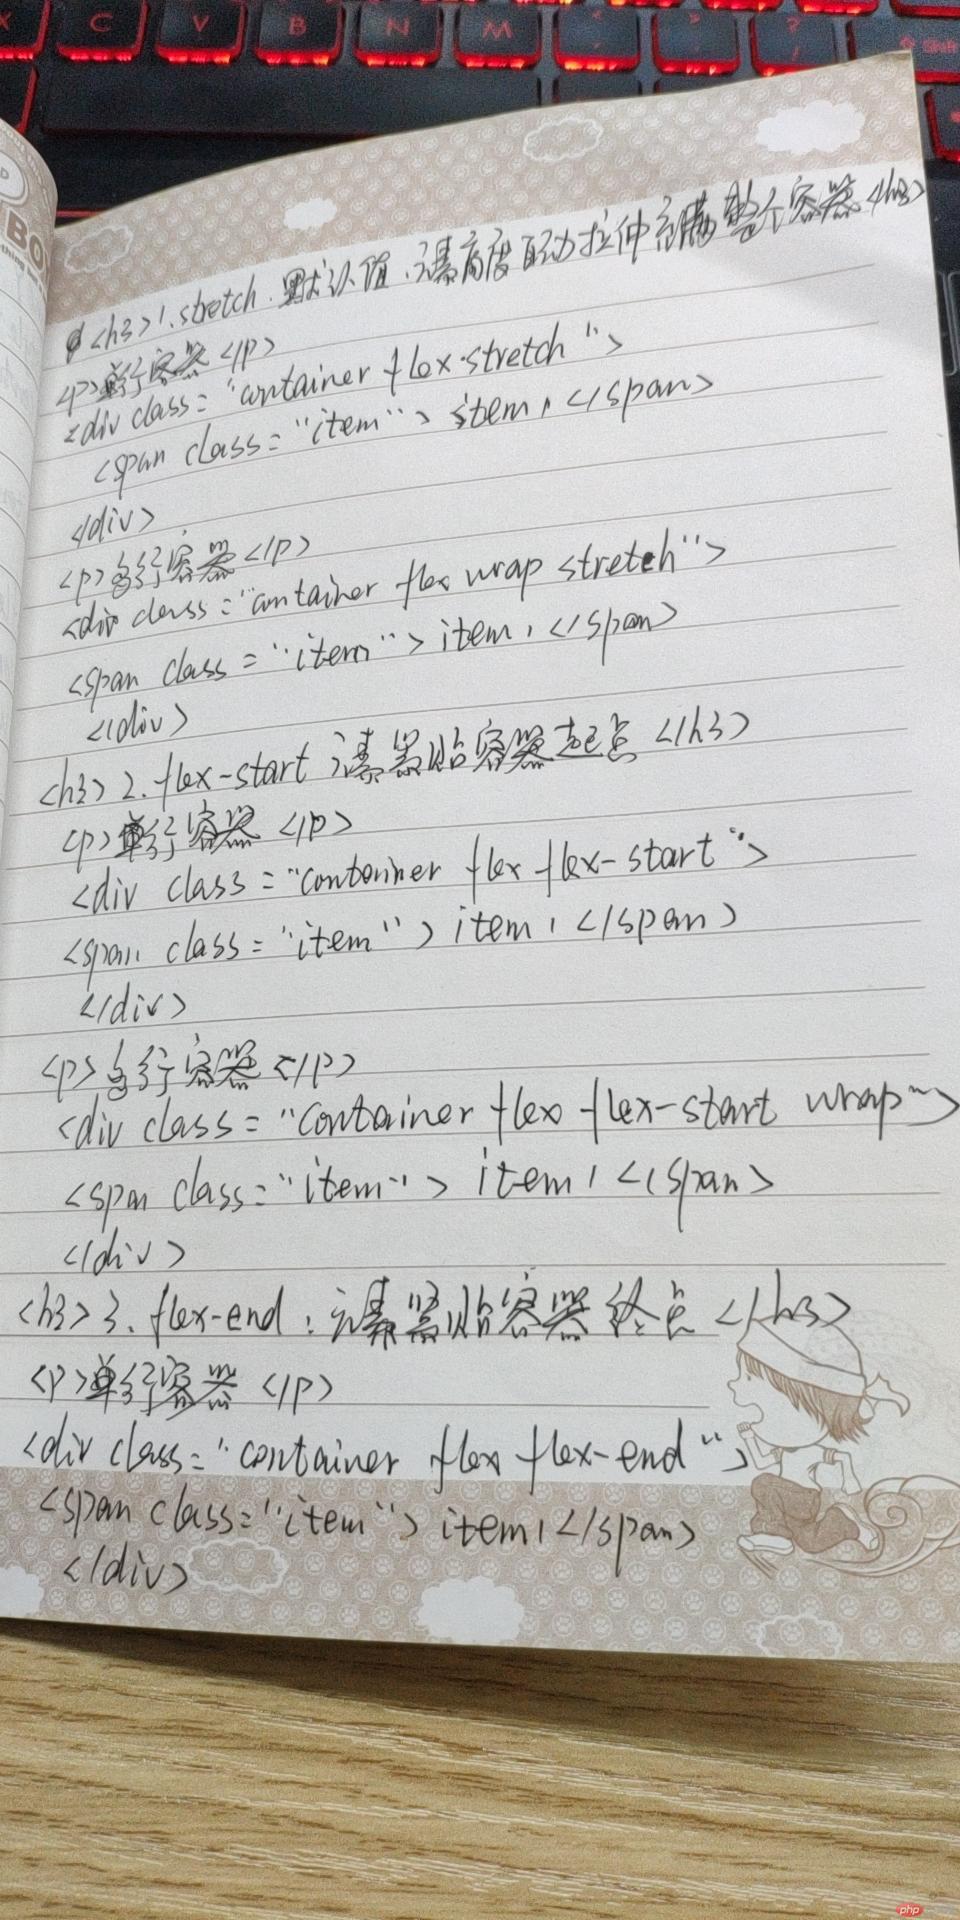 C V B N M
BO
<h3>1.stretch.默认值.元素高度自动拉伸充满整个容器<h3>
<p>单行容器</p>
<div class="container flex stretch">
<span class="item">item1</span>
</div>
<p>多行容器</p>
<div class="container flex wrap stretch">
<span class="item">item1</span>
</div>
<h3>2.flex-start元素紧贴容器起点</h3>
<p>单行容器</p>
<div class="container flex flex-start">
<span class="item">item1</span>
</div>
<p>多行容器</p>
<div class="container flex flex-start wrap">
<span class="item">item1</span>
</div>
<h3>3.flex-end:元素紧贴容器终点</h3>
<p>单行容器</p>
<div class="container flex flex-end">
<span class="item">item1</span>
</div>
php